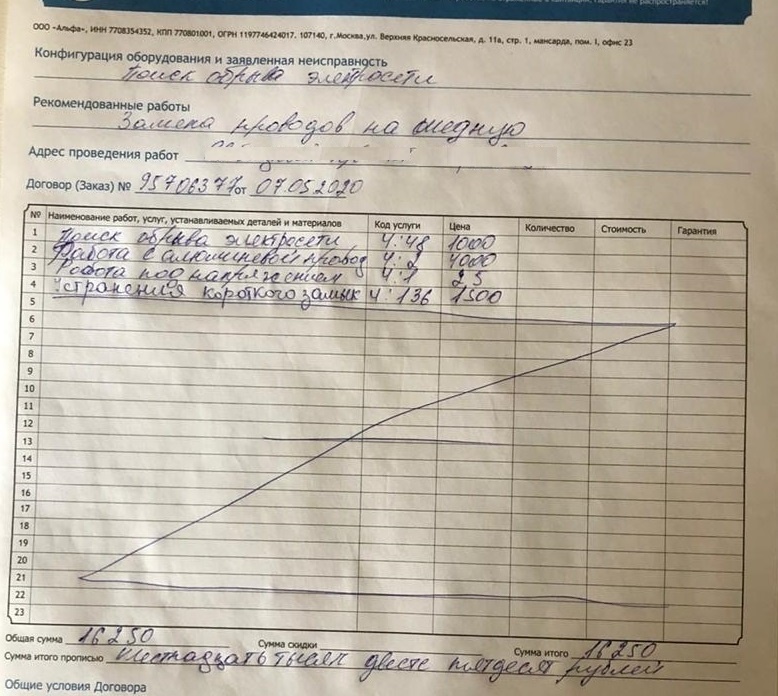 ООО «Альфа», ИНН 7708354352, КПП 770801001, ОГРН 1197746424017, 107140, г.Москва,ул. Верхняя Красносельская, д. 11а, стр. 1, мансарда, пом. I, офис 23
Конфигурация оборудования и заявленная неисправность
Поиск обрыва электросети
Рекомендованные работы
Замена проводов на медную
Адрес проведения работ
Договор (Заказ) № 95706377 от 07.05.2020
№ Наименование работ, услуг, устанавливаемых деталей и материалов Код услуги Цена Количество Стоимость Гарантия
1 Поиск обрыва электросети 4:48 1000
2 Работа с алюминевой провод 4:2 4000
3 Робота под напряжением 4:1 25
4 Устранения короткого замык 4:136 1500
5
6
7
8
9
10
11
12
13
14
15
16
17
18
19
20
21
22
23
Общая сумма 16250 Сумма скидки Сумма итого 16250
Сумма итого прописью Шестнадцать тысяч двести пятдесят рублей
Общие условия Договора